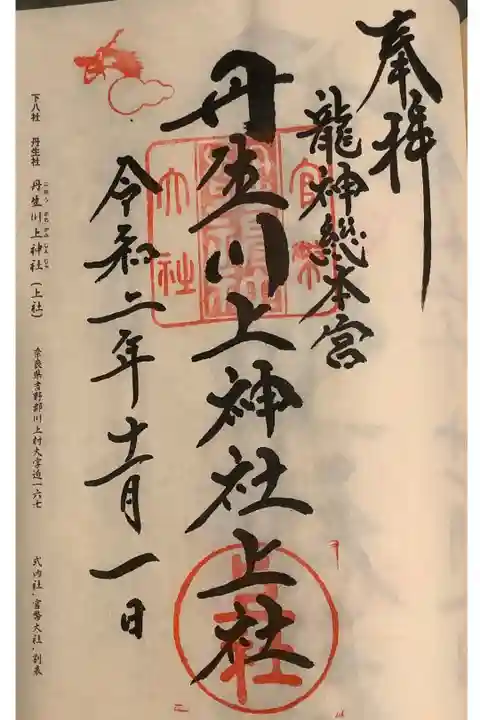 奉拝
龍神総本宮
丹生川上神社上社
令和二年十一月一日
官幣
大社
下八社 丹生社 丹生川上神社(上社) 奈良県吉野郡川上村大字迫一六七 式内社、官幣大社、別表
にうかわかみじんじゃ